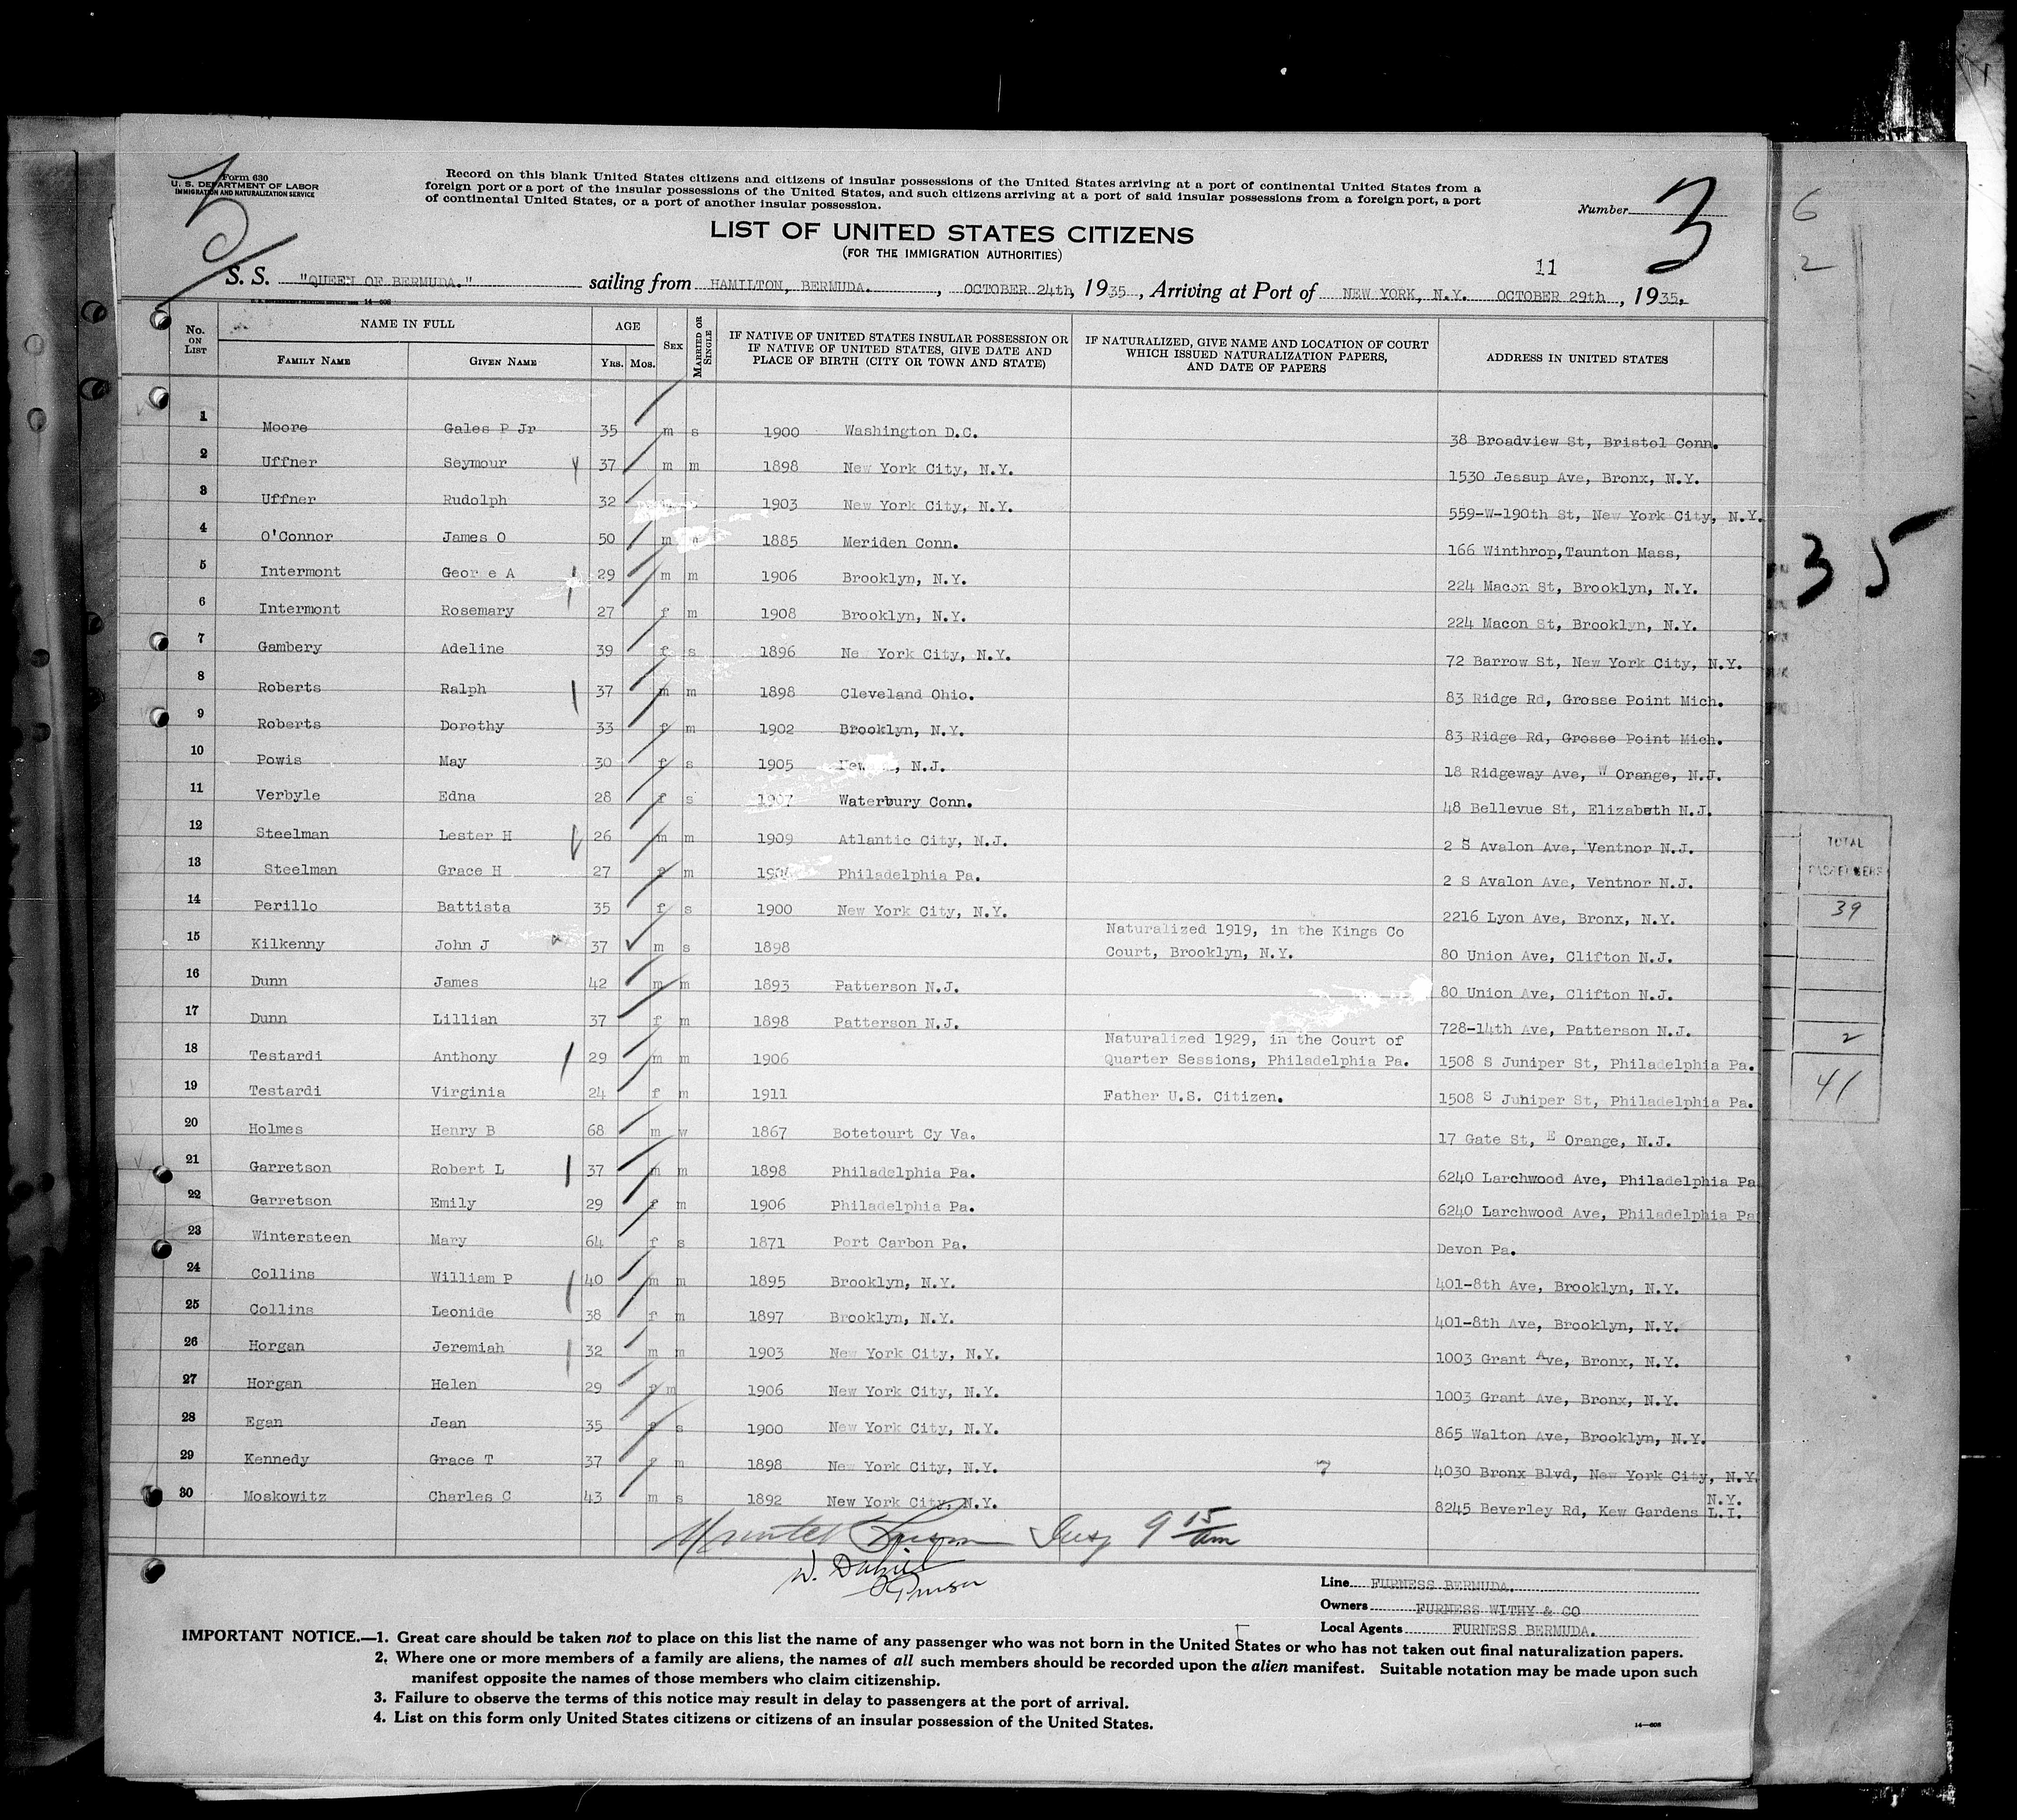 5
Form 630
U. S. DEPARTMENT OF LABOR
IMMIGRATION AND NATURALIZATION SERVICE
Record on this blank United States citizens and citizens of insular possessions of the United States arriving at a port of continental United States from a
foreign port or a port of the insular possessions of the United States, and such citizens arriving at a port of said insular possessions from a foreign port, a port
of continental United States, or a port of another insular possession.
Number 3
LIST OF UNITED STATES CITIZENS
(FOR THE IMMIGRATION AUTHORITIES)
11
S. S. "QUEEN OF BERMUDA." sailing from HAMILTON, BERMUDA. , OCTOBER 24th, 1935, Arriving at Port of NEW YORK, N.Y. OCTOBER 29th, 1935.
No. ON LIST NAME IN FULL FAMILY NAME GIVEN NAME AGE YRS. MOS. SEX MARRIED OR SINGLE IF NATIVE OF UNITED STATES INSULAR POSSESSION OR IF NATIVE OF UNITED STATES, GIVE DATE AND PLACE OF BIRTH (CITY OR TOWN AND STATE) IF NATURALIZED, GIVE NAME AND LOCATION OF COURT WHICH ISSUED NATURALIZATION PAPERS, AND DATE OF PAPERS ADDRESS IN UNITED STATES
1 Moore Gales P Jr 35 m s 1900 Washington D.C. 38 Broadview St, Bristol Conn.
2 Uffner Seymour 37 m m 1898 New York City, N.Y. 1530 Jessup Ave, Bronx, N.Y.
3 Uffner Rudolph 32 1903 New York City, N.Y. 559-W-190th St, New York City, N.Y.
4 O'Connor James O 50 m 1885 Meriden Conn. 166 Winthrop, Taunton Mass,
5 Intermont Geor e A 29 m m 1906 Brooklyn, N.Y. 224 Macon St, Brooklyn, N.Y.
6 Intermont Rosemary 27 f m 1908 Brooklyn, N.Y. 224 Macon St, Brooklyn, N.Y.
7 Gambery Adeline 39 f s 1896 Ne York City, N.Y. 72 Barrow St, New York City, N.Y.
8 Roberts Ralph 37 m m 1898 Cleveland Ohio. 83 Ridge Rd, Grosse Point Mich.
9 Roberts Dorothy 33 f m 1902 Brooklyn, N.Y. 83 Ridge Rd, Grosse Point Mich.
10 Powis May 30 f s 1905 N.J. 18 Ridgeway Ave, W Orange, N.J.
11 Verbyle Edna 28 f s 1907 Waterbury Conn. 48 Bellevue St, Elizabeth N.J.
12 Steelman Lester H 26 m m 1909 Atlantic City, N.J. 2 S Avalon Ave, Ventnor N.J.
13 Steelman Grace H 27 f m Philadelphia Pa. 2 S Avalon Ave, Ventnor N.J.
14 Perillo Battista 35 f s 1900 New York City, N.Y. 2216 Lyon Ave, Bronx, N.Y.
15 Kilkenny John J 37 m s 1898 Naturalized 1919, in the Kings Co Court, Brooklyn, N.Y. 80 Union Ave, Clifton N.J.
16 Dunn James 42 m m 1893 Patterson N.J. 80 Union Ave, Clifton N.J.
17 Dunn Lillian 37 f m 1898 Patterson N.J. 728-14th Ave, Patterson N.J.
18 Testardi Anthony 29 m m 1906 Naturalized 1929, in the Court of Quarter Sessions, Philadelphia Pa. 1508 S Juniper St, Philadelphia Pa.
19 Testardi Virginia 24 f m 1911 Father U.S. Citizen. 1508 S Juniper St, Philadelphia Pa.
20 Holmes Henry B 68 m w 1867 Botetourt Cy Va. 17 Gate St, E Orange, N.J.
21 Garretson Robert L 37 m m 1898 Philadelphia Pa. 6240 Larchwood Ave, Philadelphia Pa
22 Garretson Emily 29 f m 1906 Philadelphia Pa. 6240 Larchwood Ave, Philadelphia Pa
23 Wintersteen Mary 64 f s 1871 Port Carbon Pa. Devon Pa.
24 Collins William P 40 m m 1895 Brooklyn, N.Y. 401-8th Ave, Brooklyn, N.Y.
25 Collins Leonide 38 f m 1897 Brooklyn, N.Y. 401-8th Ave, Brooklyn, N.Y.
26 Horgan Jeremiah 32 m m 1903 New York City, N.Y. 1003 Grant Ave, Bronx, N.Y.
27 Horgan Helen 29 f m 1906 New York City, N.Y. 1003 Grant Ave, Bronx, N.Y.
28 Egan Jean 35 f s 1900 New York City, N.Y. 865 Walton Ave, Brooklyn, N.Y.
29 Kennedy Grace T 37 f m 1898 New York City, N.Y. 4030 Bronx Blvd, New York City, N.Y.
30 Moskowitz Charles C 43 m s 1892 New York City, N.Y. 8245 Beverley Rd, Kew Gardens L.I. N.Y.
9 15 am
Purser
Line FURNESS BERMUDA.
Owners FURNESS WITHY & CO
Local Agents FURNESS BERMUDA.
IMPORTANT NOTICE.—1. Great care should be taken not to place on this list the name of any passenger who was not born in the United States or who has not taken out final naturalization papers.
2. Where one or more members of a family are aliens, the names of all such members should be recorded upon the alien manifest. Suitable notation may be made upon such
manifest opposite the names of those members who claim citizenship.
3. Failure to observe the terms of this notice may result in delay to passengers at the port of arrival.
4. List on this form only United States citizens or citizens of an insular possession of the United States.
14—608
6
2
35
TOTAL
PASSENGERS
39
2
41